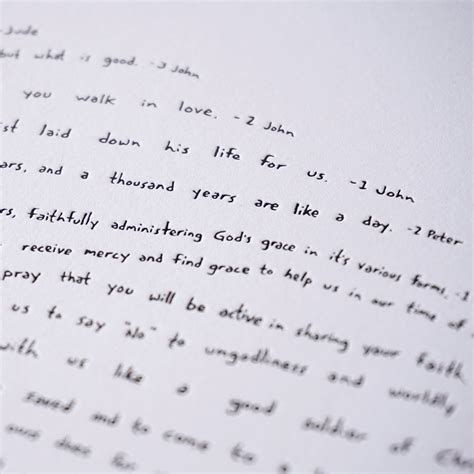 -Jude
but what is good. -3 John
you walk in love. -2 John
st laid down his life for us. -1 John
ars, and a thousand years are like a day. -2 Peter
rs, faithfully administering God's grace in it's various forms. -1
receive mercy and find grace to help us in our time of
pray that you will be active in sharing your faith
us to say "No" to ungodliness and worldly
with us like a good soldier of Ch
saved and to come to a